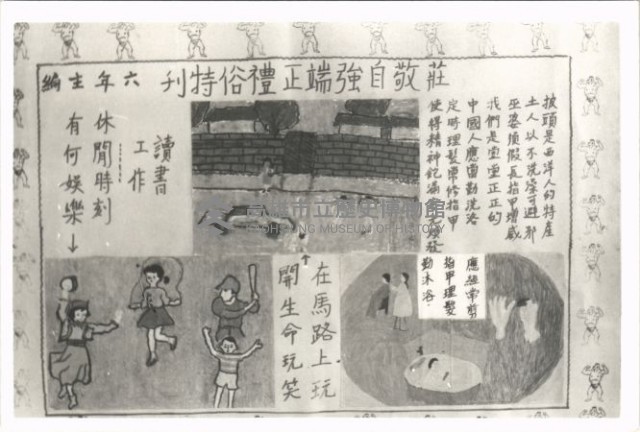 莊敬自強端正禮俗特刊 六年生編
披頭是西洋人的特產
土人以不洗澡可避邪
巫婆須假長指甲增威
我們是堂堂正正的
中國人應當勤洗浴
定時理髮常修指甲
使得精神飽滿
讀書
工作
休閒時刻
有何娛樂↓
↑
在馬路上玩
開生命玩笑
應經常剪
指甲理髮
勤沐浴
高雄市立歷史博物館
KAOHSIUNG MUSEUM OF HISTORY